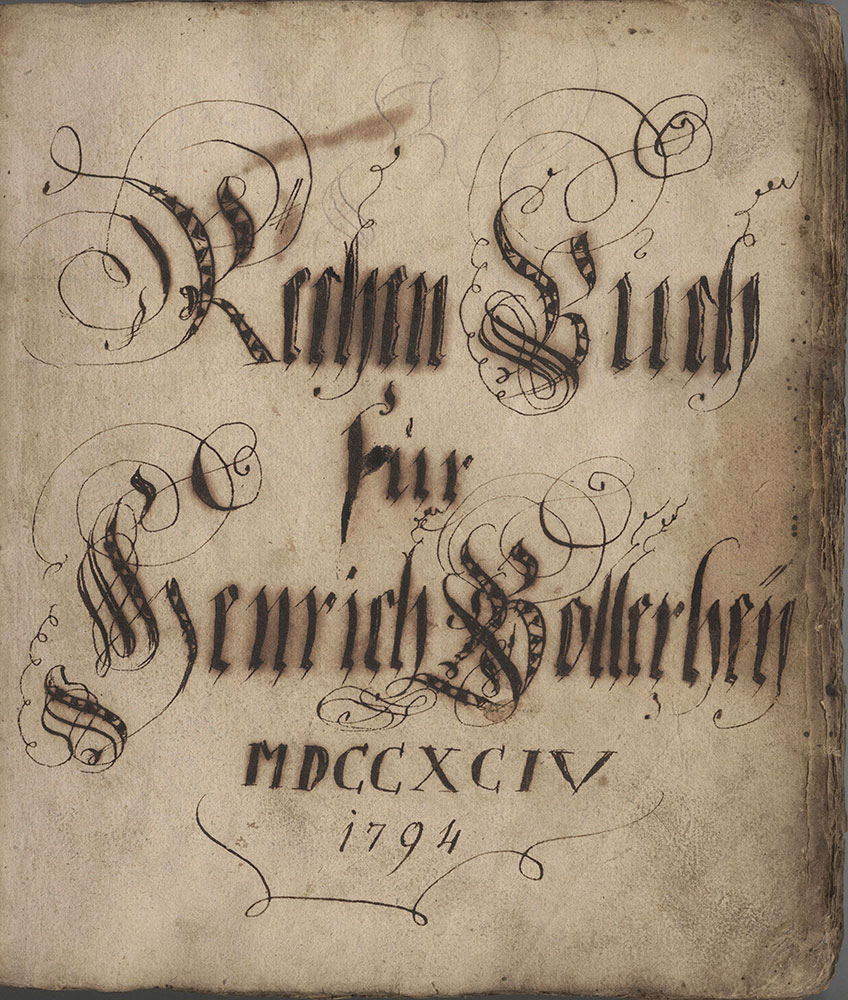 Rechen Buch
für
Henrich Vollerheÿ
MDCCXCIV
1794